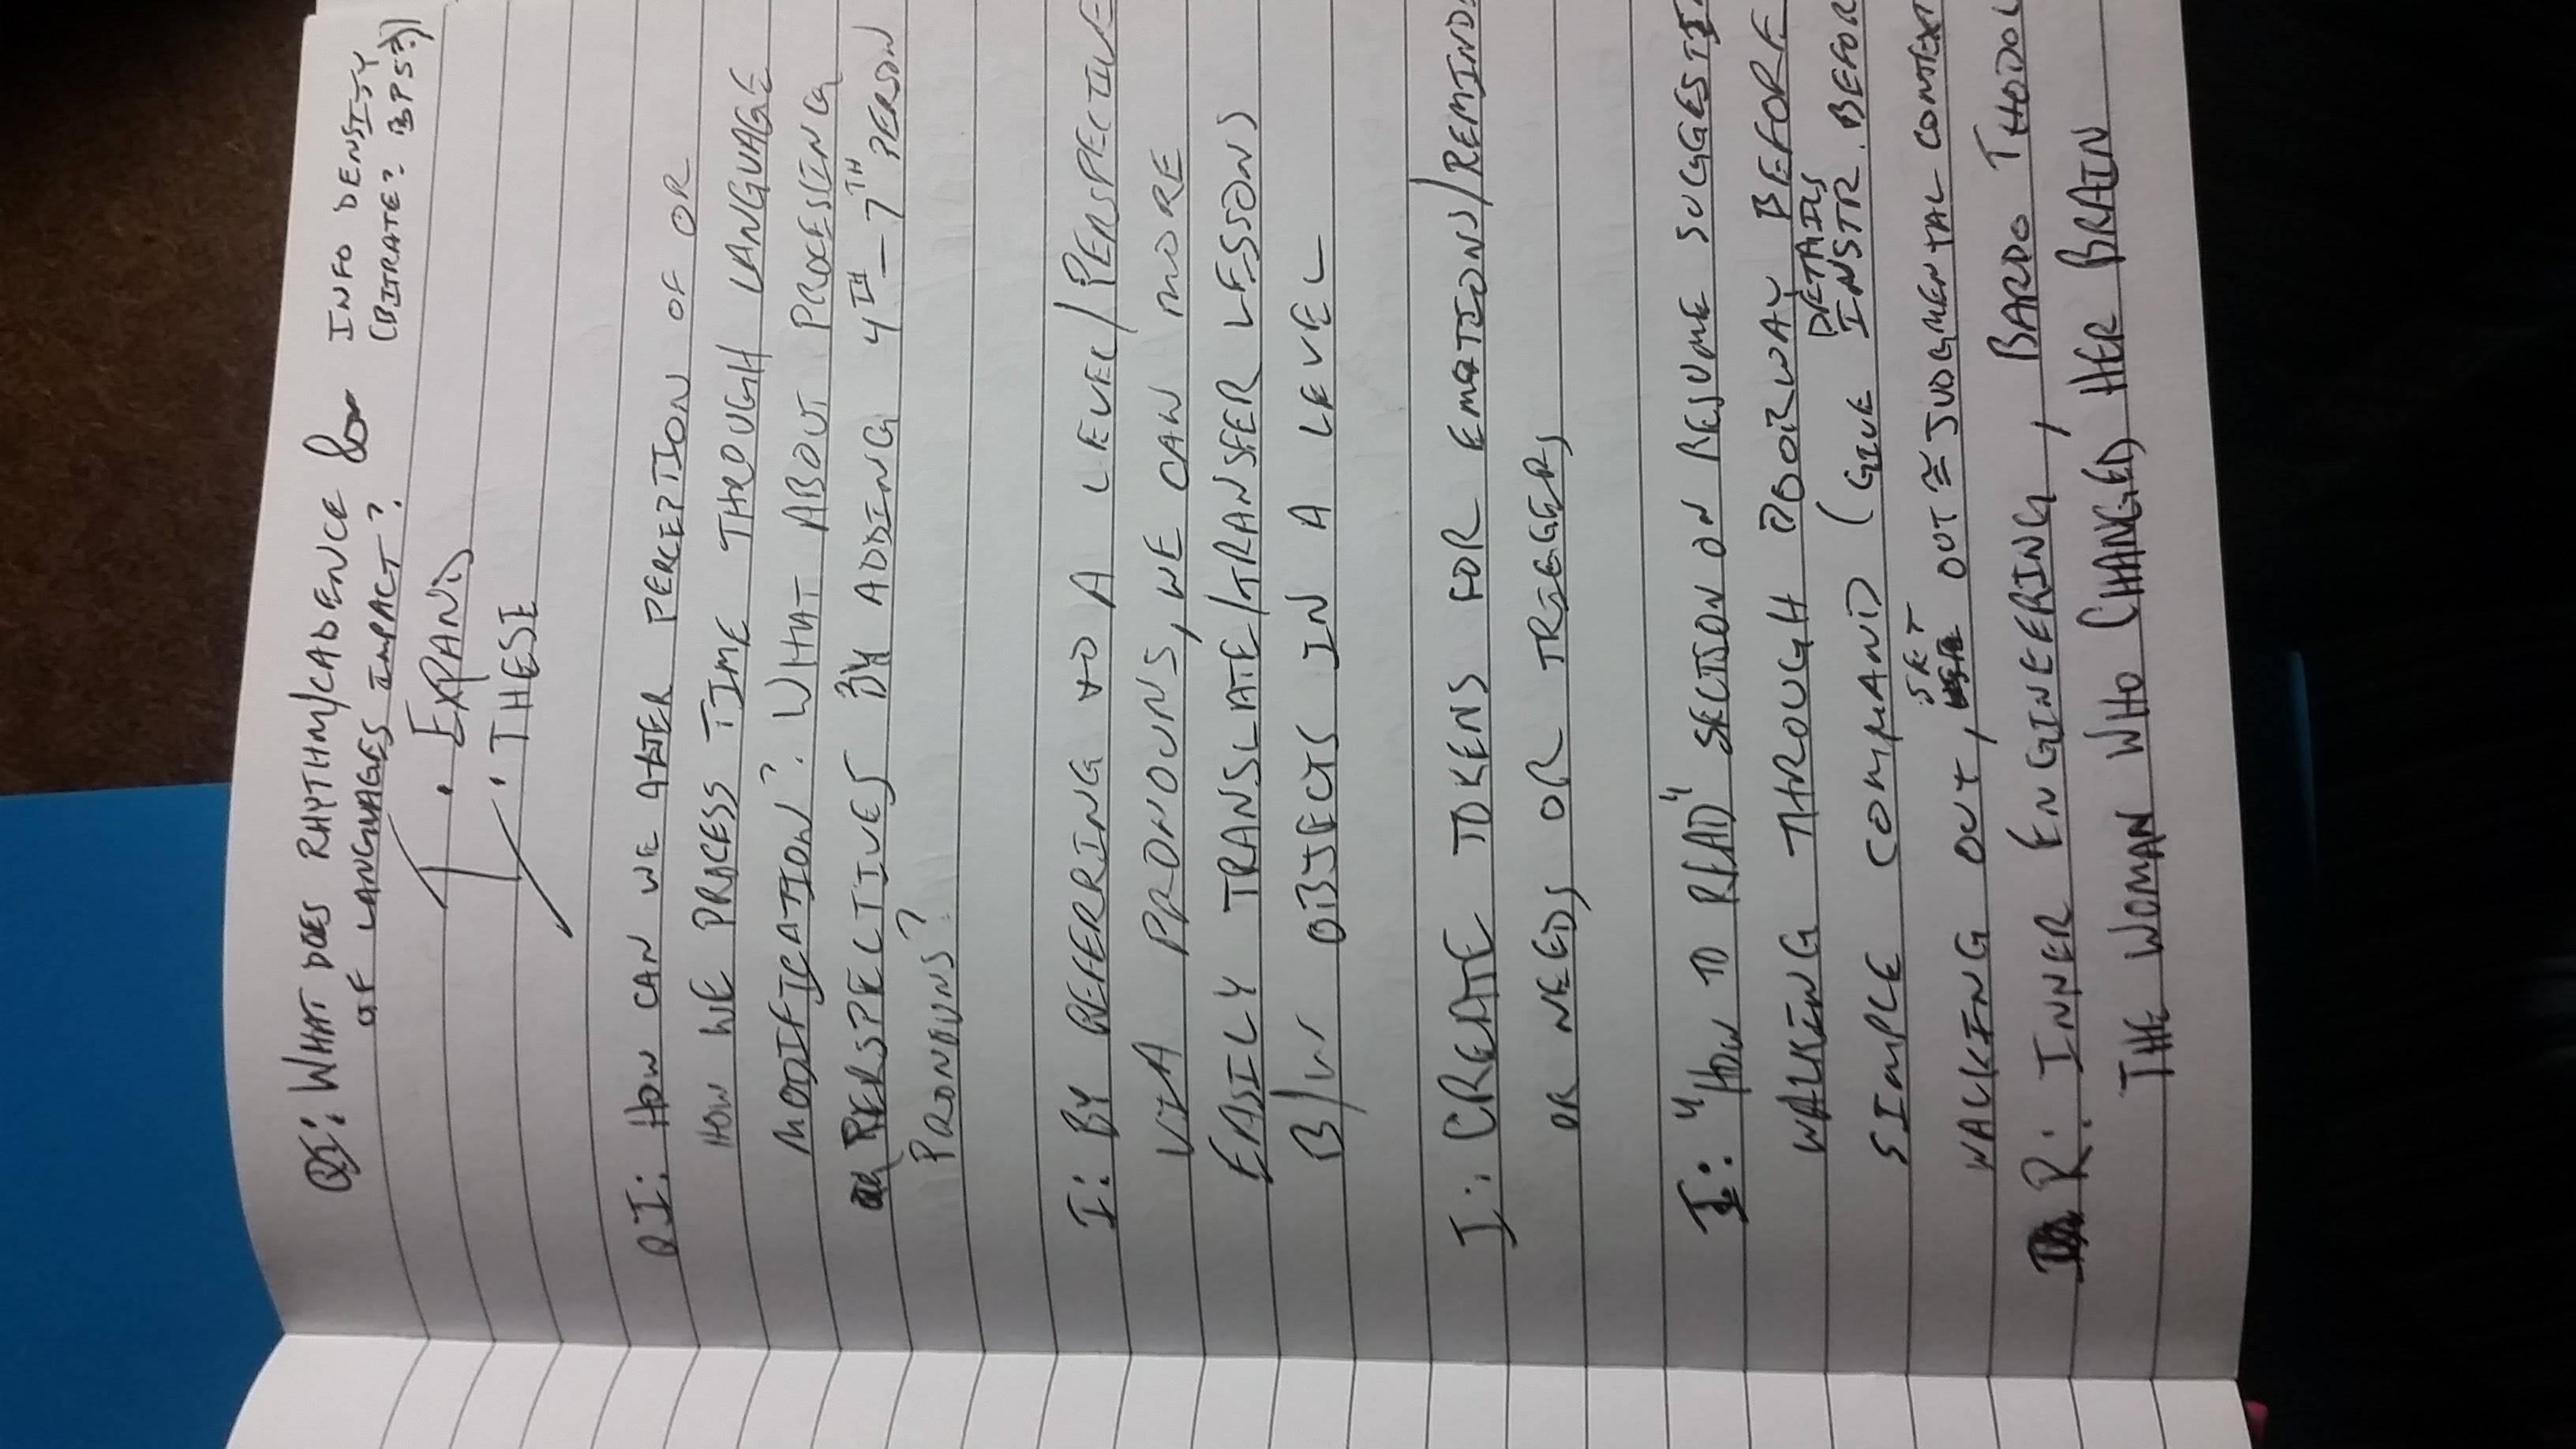 QI: WHAT DOES RHYTHM/CADENCE & INFO DENSITY
OF LANGUAGES IMPACT? (BITRATE? BPS?)
• EXPAND
• THESE
QI: HOW CAN WE ALTER PERCEPTION OF OR
HOW WE PROCESS TIME THROUGH LANGUAGE
MODIFICATION? WHAT ABOUT PROCESSING
PERSPECTIVES BY ADDING 4TH-7TH PERSON
PRONOUNS?
I: BY REFERRING TO A LEVEL/PERSPECTIVE
VIA PRONOUNS, WE CAN MORE
EASILY TRANSLATE/TRANSFER LESSONS
B/W OBJECTS IN A LEVEL
I: CREATE TOKENS FOR EMOTIONS/REMIND
OR NEEDS OR TRIGGERS
I: "HOW TO READ" SECTION ON RESUME SUGGESTI
WALKING THROUGH DOORWAY BEFORE
DETAILS
SIMPLE COMMAND (GIVE INSTR. BEFOR
SET
WALKING OUT, OUT ≅ JUDGMENTAL CONTEXT
R: INNER ENGINEERING, BARDO THODOL
THE WOMAN WHO CHANGED HER BRAIN